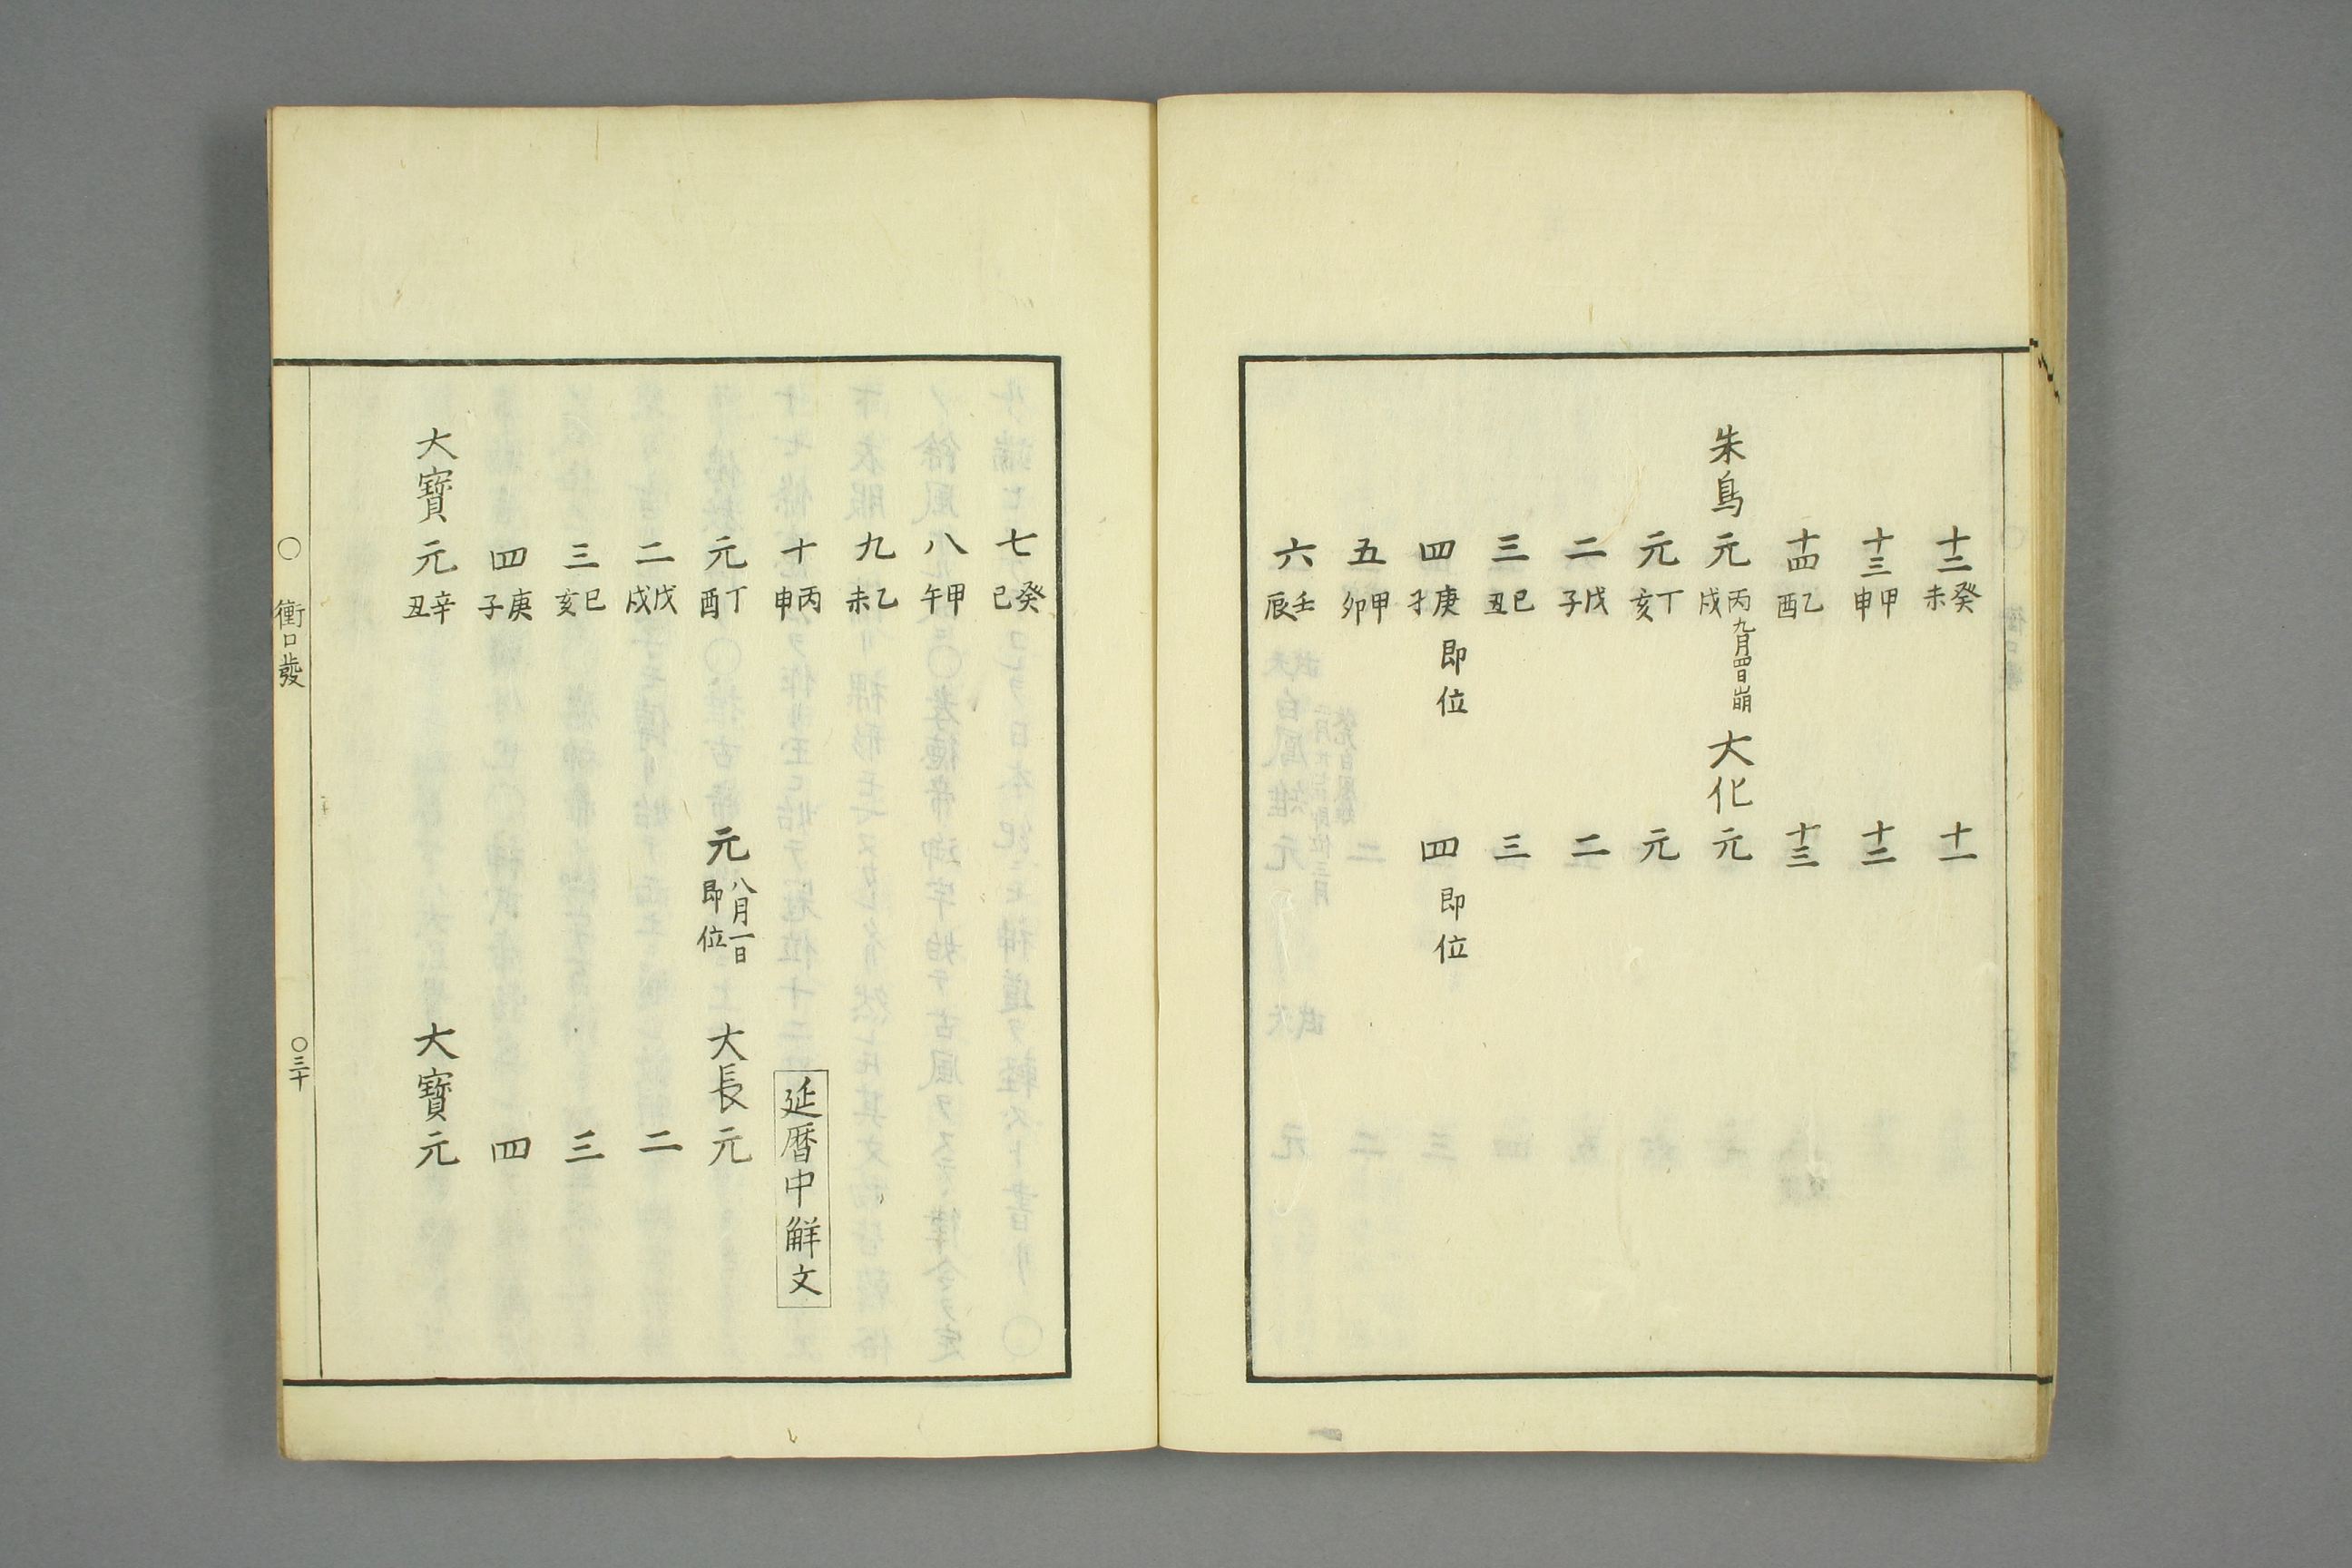 十二癸未 十一
十三甲申 十二
十四乙酉 十三
朱鳥元丙戌九月四日崩 大化元
元丁亥 元
二戊子 二
三巳丑 三
四庚 即位 四 即位
五甲卯
六壬辰
七癸巳
八甲午
九乙未
十丙申 延暦中觧文
元丁酉 元八月一日即位 大長元
二戊戌 二
三巳亥 三
四庚子 四
大寶元辛丑 大寶元
○ 衝口發 ○三十